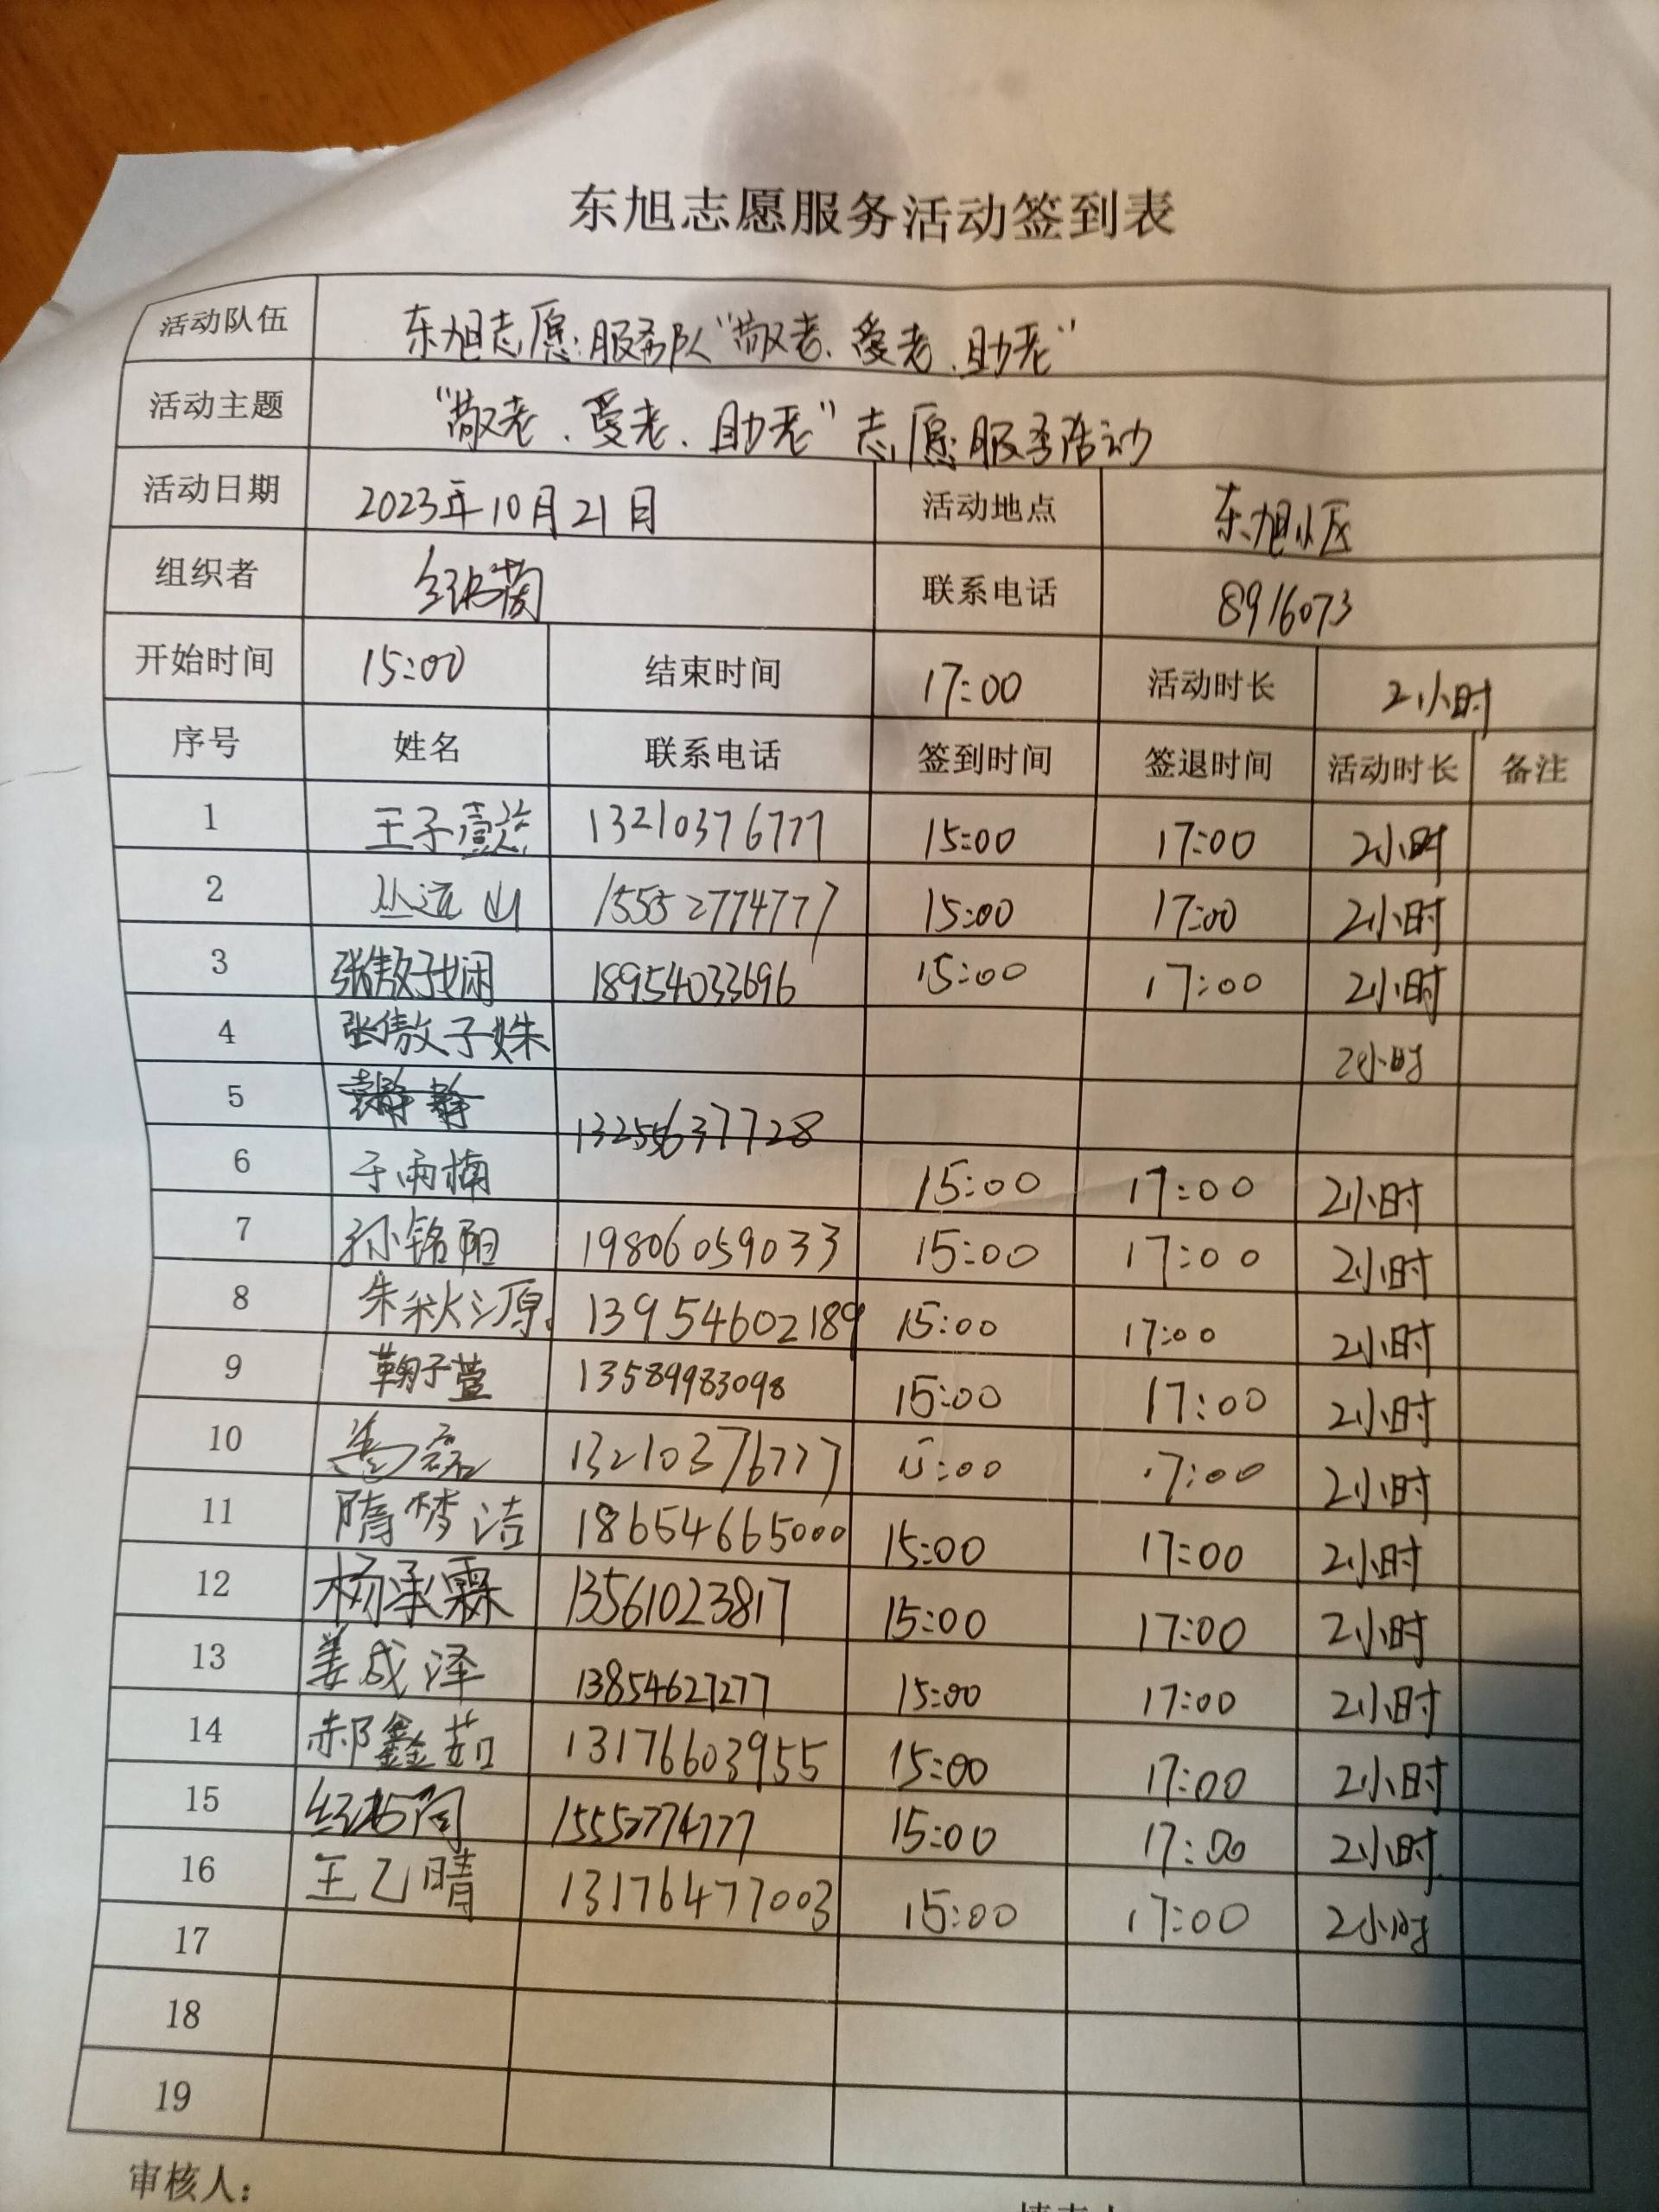 东旭志愿服务活动签到表
活动队伍 东旭志愿服务队“敬老、爱老、助老”
活动主题 “敬老、爱老、助老”志愿服务活动
活动日期 2023年10月21日 活动地点 东旭小区
组织者 联系电话 8916073
开始时间 15:00 结束时间 17:00 活动时长 2小时
序号 姓名 联系电话 签到时间 签退时间 活动时长 备注
1 王子懿 13210376777 15:00 17:00 2小时
2 丛远山 15552774777 15:00 17:00 2小时
3 张傲子娴 18954033696 15:00 17:00 2小时
4 张傲子姝 2小时
5 13255637728
6 于雨楠 15:00 17:00 2小时
7 孙铭阳 19806059033 15:00 17:00 2小时
8 朱秋源 13954602189 15:00 17:00 2小时
9 鞠子萱 13589983098 15:00 17:00 2小时
10 13210376777 15:00 17:00 2小时
11 隋梦洁 18654665000 15:00 17:00 2小时
12 杨承霖 13561023817 15:00 17:00 2小时
13 姜成泽 13854627277 15:00 17:00 2小时
14 郝鑫茹 13176603955 15:00 17:00 2小时
15 15552774777 15:00 17:00 2小时
16 王乙晴 13176477003 15:00 17:00 2小时
17
18
19
审核人：